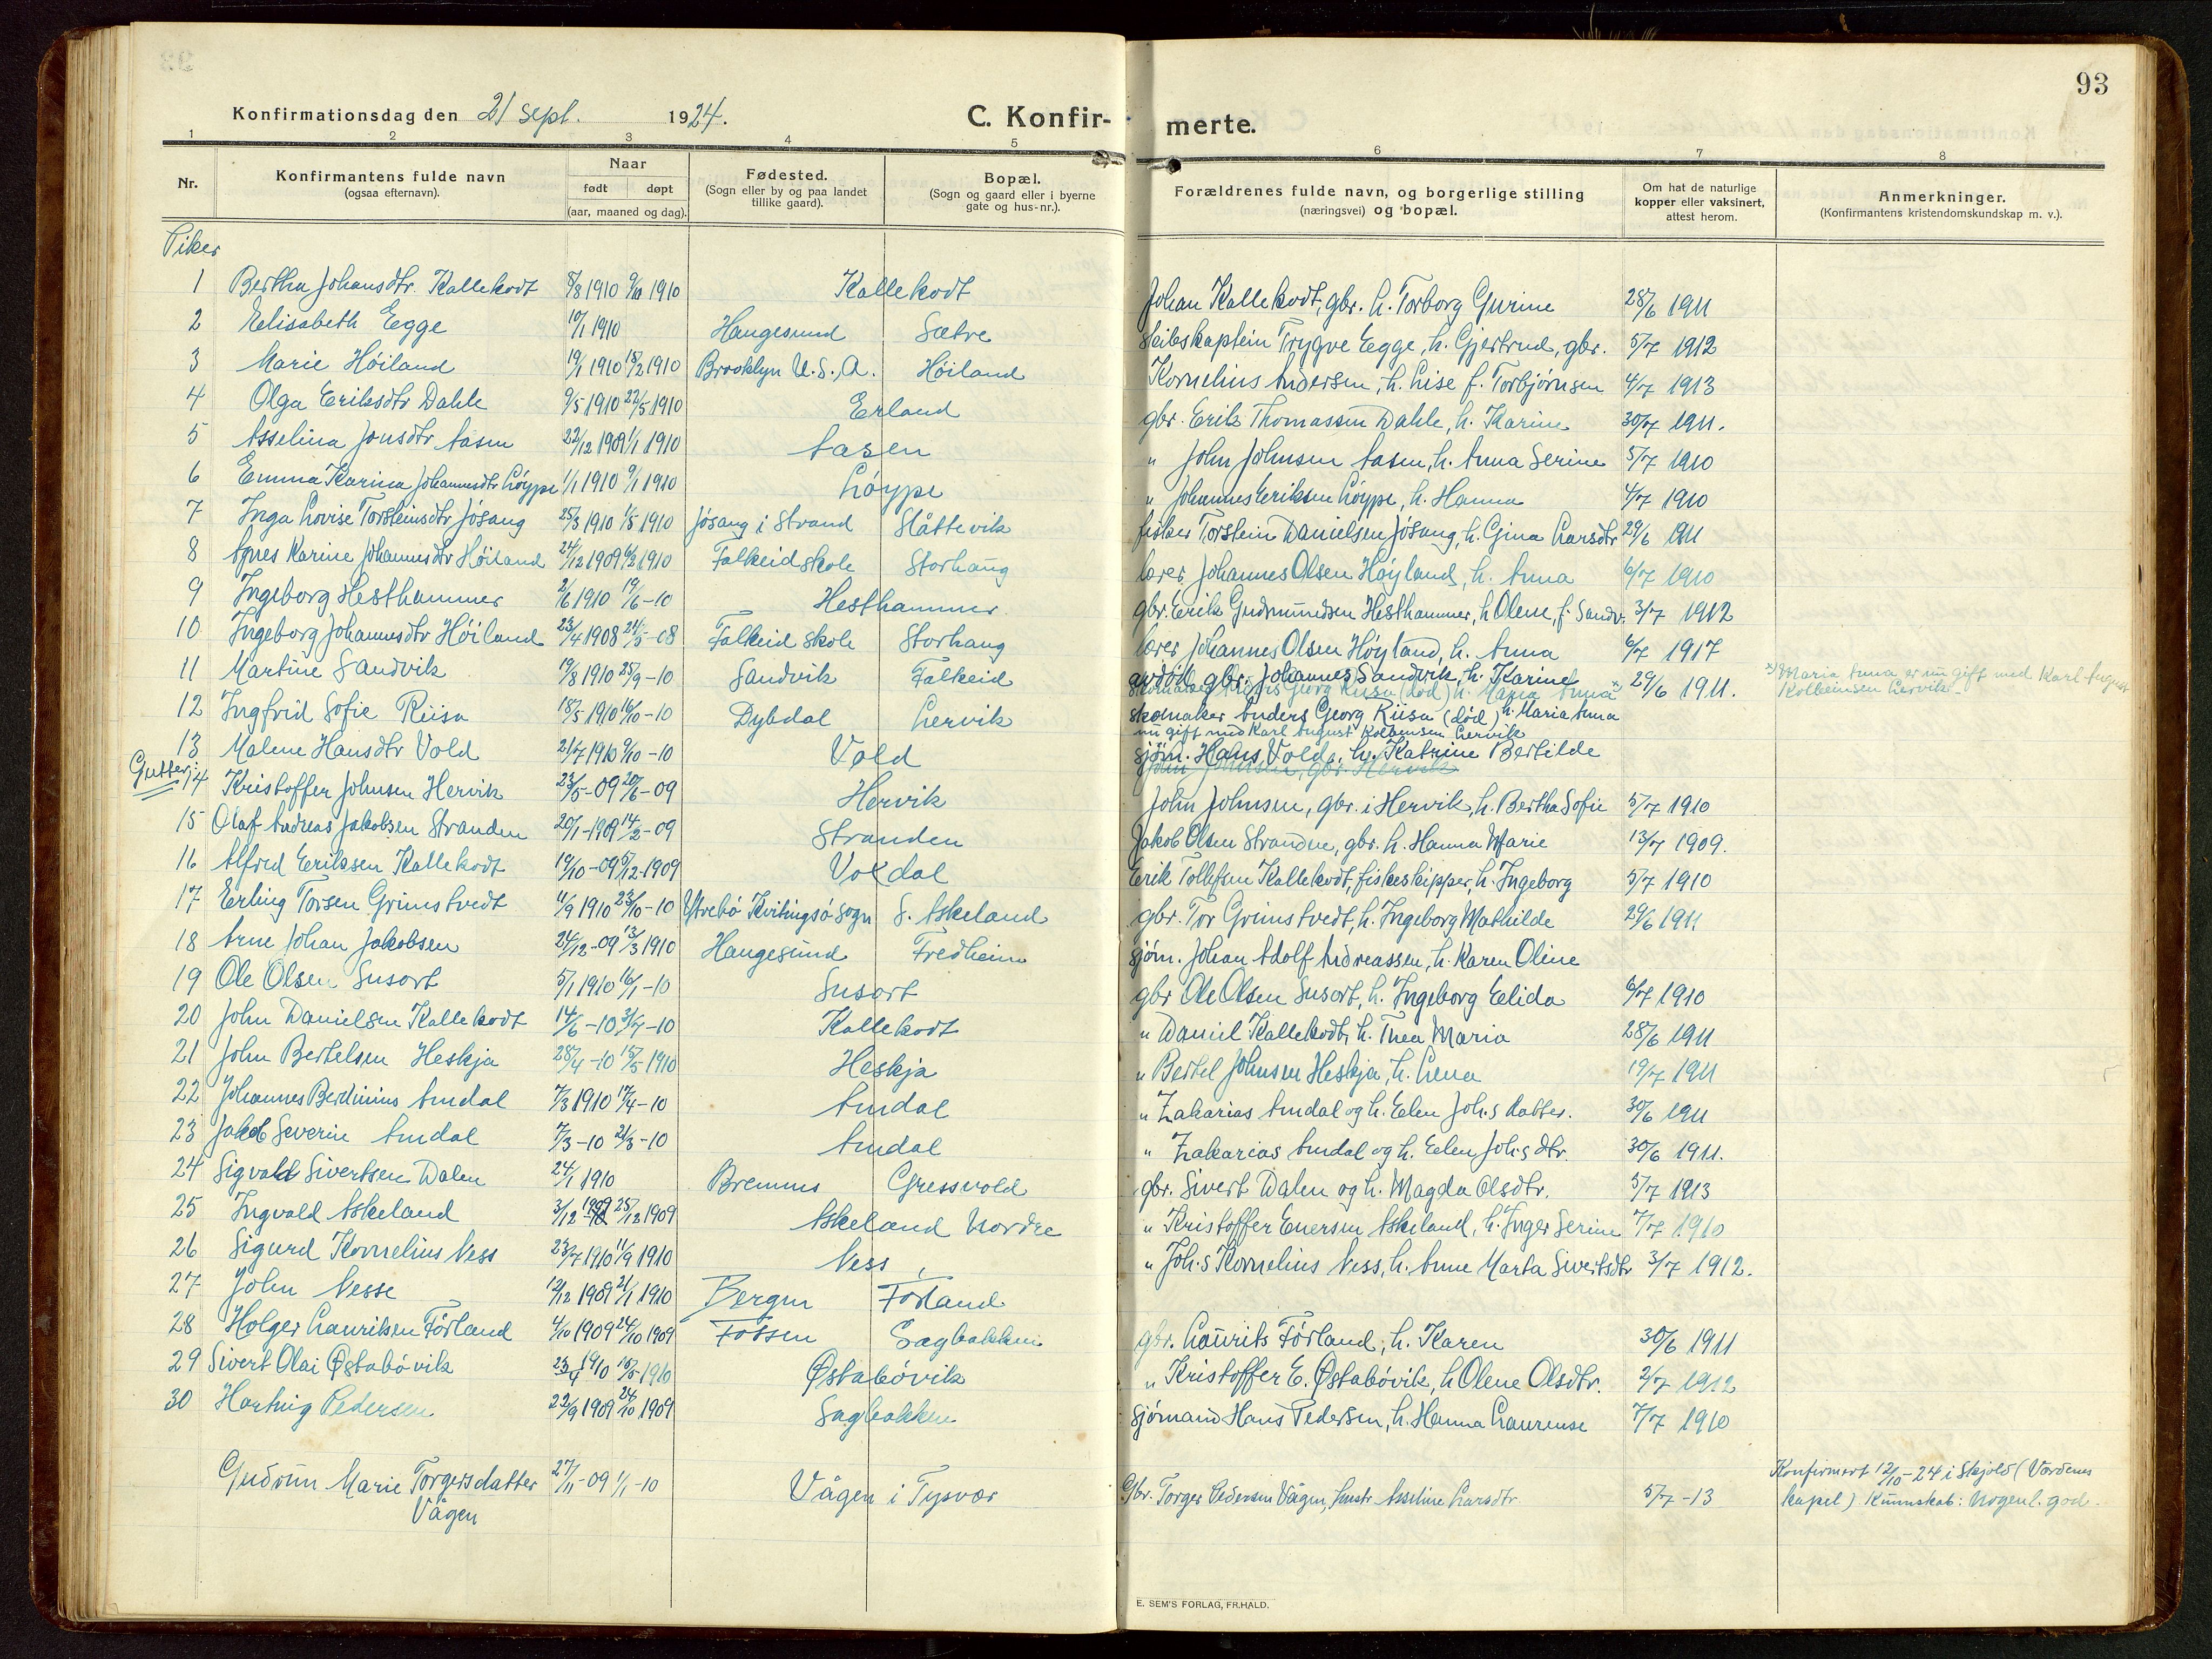 93
Konfirmationsdag den 21 sept. 1924.
C. Konfir-merte.
1 2 3 4 5 6 7 8
Nr.
Konfirmantens fulde navn
(ogsaa efternavn).
Naar
født døpt
(aar, maaned og dag).
Fødested.
(Sogn eller by og paa landet
tillike gaard).
Bopæl.
(Sogn og gaard eller i byerne
gate og hus-nr.).
Forældrenes fulde navn, og borgerlige stilling
(næringsvei) og bopæl.
Om hat de naturlige
kopper eller vaksinert,
attest herom.
Anmerkninger.
(Konfirmantens kristendomskundskap m. v.).
Piker
1 Bertha Johansdtr. Kallekodt 8/8 1910 9/10 1910 Kallekodt Johan Kallekodt, gbr. h. Torborg Gurine 28/6 1911
2 Elisabeth Egge 10/1 1910 Haugesund Sætre Skibskaptein Trygve Egge, h. Gjertrud, gbr. 5/7 1912
3 Marie Höiland 19/1 1910 13/2 1910 Brooklyn U.S.A. Höiland Kornelius Andersen, h. Lise f. Torbjørnsen 4/7 1913
4 Olga Eriksdtr Dahle 9/5 1910 22/5 1910 Erland gbr. Erik Thomassen Dahle, h. Karine 30/7 1911.
5 Asselina Jonsdtr Aasen 22/12 1909 1/1 1910 Aasen " John Johnsen Aasen, h. Anna Serine 5/7 1910
6 Emma Karina Johannesdtr Löype 1/1 1910 9/1 1910 Löype " Johannes Eriksen Löype, h. Hanna 4/7 1910
7 Inga Lovise Torsteinsdtr Jösang 25/3 1910 1/5 1910 Jösang i Strand Slåttevik fisker Torstein Danielsen Jösang, h. Gina Larsdtr 29/6 1911
8 Agnes Karine Johannesdtr Höiland 24/12 1909 6/2 1910 Falkeid skole Storhaug lærer Johannes Olsen Höyland, h. Anna 6/7 1910
9 Ingeborg Hesthammer 2/6 1910 19/6-10 Hesthammer gbr. Erik Gudmundsen Hesthammer, h Olene, f. Sandv. 3/7 1912
10 Ingeborg Johannesdtr Höiland 23/4 1908 24/5-08 Falkeid skole Storhaug lærer Johannes Olsen Höyland, h. Anna 6/7 1917
11 Martine Sandvik 19/8 1910 25/9-10 Sandvik Falkeid avdöd gbr. Johannes Sandvik, h. Karine 29/6 1911.
x) Maria Anna er nu gift med Karl August
Kolbeinsen Lervik
12 Ingfrid Sofie Riisa 18/5 1910 16/10-10 Dybdal Lervik skomaker Anders Georg Riisa (död) h. Maria Anna
nu gift med Karl August Kolbeinsen Lervik
13 Malene Hansdtr Vold 21/7 1910 9/10-10 Vold sjöm. Hans Vold, h. Katrine Bertilde
John Johnsen, gbr. Hervik
Gutter:
14 Kristoffer Johnsen Hervik 23/5-09 20/6-09 Hervik John Johnsen, gbr. i Hervik, h. Bertha Sofie 5/7 1910
15 Olaf Andreas Jakobsen Stranden 20/1-1909 14/2-09 Stranden Jakob Olsen Stranden, gbr. h. Hanna Marie 13/7 1909.
16 Alfred Eriksen Kallekodt 19/10-09 5/12-1909 Voxdal Erik Tollefsen Kallekodt, fiskeskipper, h. Ingeborg 5/7 1910
17 Erling Torsen Grimstvedt 11/9 1910 23/10-10 Ytrebö Kvitingsö sogn S. Askeland gbr. Tor Grimstvedt, h. Ingeborg Mathilde 29/6 1911
18 Arne Johan Jakobsen 24/12-09 13/3 1910 Haugesund Fredheim sjöm. Johan Adolf Andreassen, h. Karen Oline
19 Ole Olsen Susort 5/1 1910 16/1-10 Susort gbr Ole Olsen Susort, h. Ingeborg Elida 6/7 1910
20 John Danielsen Kallekodt 14/6-10 3/7-10 Kallekodt " Daniel Kallekodt, h. Thea Maria 28/6 1911
21 John Bertelsen Heskja 28/4-10 15/5 1910 Heskja " Bertel Johnsen Heskja, h. Lena 19/7 1911
22 Johannes Berdinius Amdal 7/3 1910 17/4-10 Amdal " Zakarias Amdal og h. Elen Joh.s datter. 30/6 1911
23 Jakob Severin Amdal 7/3-10 21/3-10 Amdal " Zakarias Amdal og h. Elen Joh.s dtr. 30/6 1911.
24 Sigvald Sivertsen Dalen 24/1 1910 Bremnes Gressvold gbr. Sivert Dalen og h. Magda Olsdtr. 5/7 1913
25 Ingvald Askeland 3/12 1909 25/12 1909 Askeland Nordre " Kristoffer Enersen Askeland, h. Inger Serine 7/7 1910
26 Sigurd Kornelius Ness 23/7 1910 11/9 1910 Ness " Joh.s Kornelius Ness, h. Anne Marta Sivertsdtr 3/7 1912.
27 John Nesse 12/12 1909 2/1 1910 Bergen Förland
28 Holger Lauritsen Förland 4/10 1909 24/10 1909 Fossen Sagbakken gbr. Laurits Förland, h. Karen 30/6 1911
29 Sivert Olai Østabövik 23/4 1910 16/5 1910 Østabövik " Kristoffer E. Østabövik, h Olene Olsdtr. 2/7 1912
30 Hartvig Pedersen 22/9 1909 24/10 1909 Sagbakken Sjömand Hans Pedersen, h. Hanna Laurense 7/7 1910
Gudrun Marie Torgersdatter 27/11-09 1/1-10 Vågen i Tysvær Gbr. Torger Pedersen Vågen, hustr. Asseline Larsdtr 5/7-13
Vågen
Konfirmert 12/10-24 i Skjold (Vardenes
kapel) Kunnskab: Nogenl. god.
E. SEM'S FORLAG, FR.HALD.